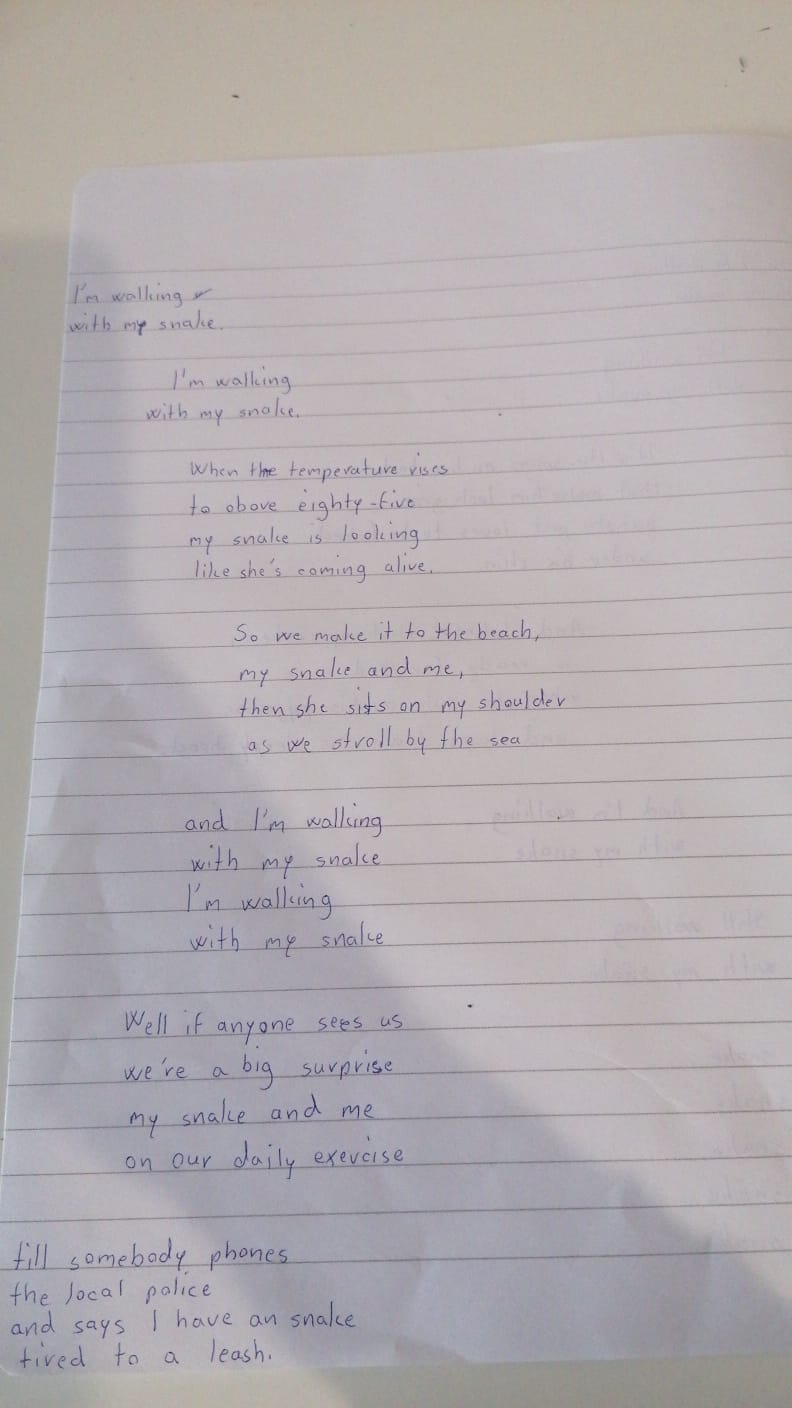 I'm walking
with my snake.
I'm walking
with my snake.
When the temperature rises
to above eighty-five
my snake is looking
like she's coming alive.
So we make it to the beach,
my snake and me,
then she sits on my shoulder
as we stroll by the sea
and I'm walking
with my snake
I'm walking
with my snake
Well if anyone sees us
we're a big surprise
my snake and me
on our daily exercise
till somebody phones
the local police
and says I have an snake
tired to a leash.